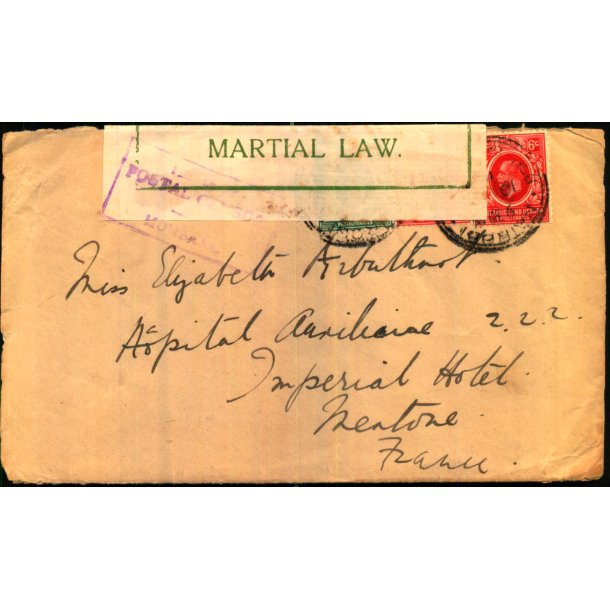 MARTIAL LAW.
POSTAL
6c
Miss Elizabeth Arbuthnot.
Hôpital Auxiliaire 222.
Imperial Hotel.
Mentone.
France.